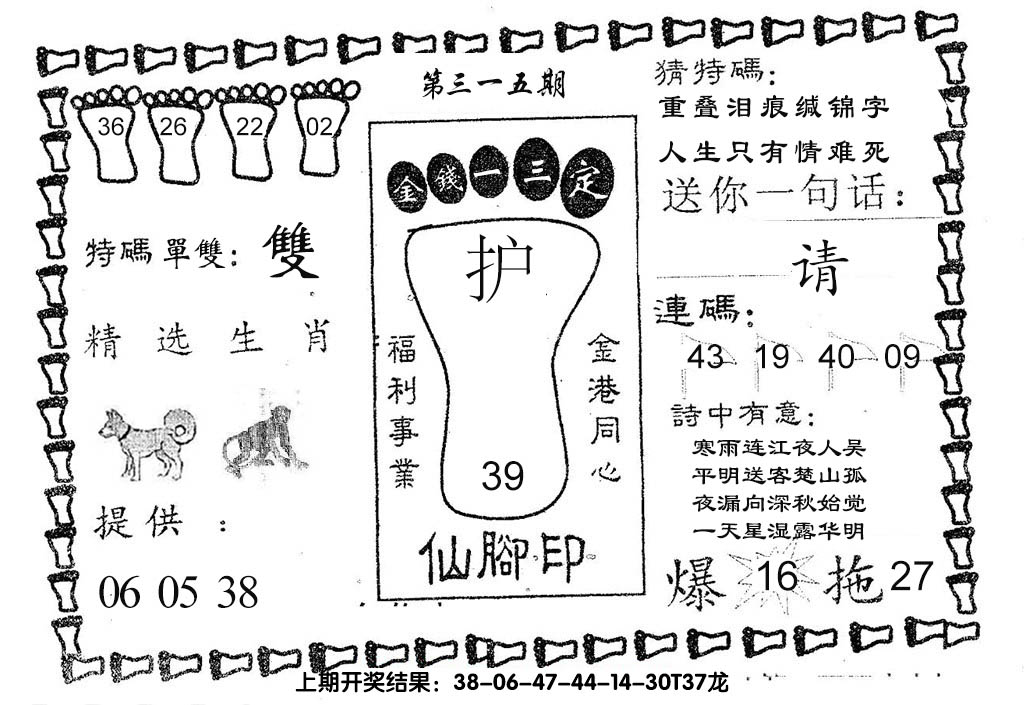 第三一五期
36 26 22 02
特碼單雙：雙
精选生肖
提供：
06 05 38
金錢一三定
护
福利事業
金港同心
39
仙腳印
猜特碼：
重叠泪痕缄锦字
人生只有情难死
送你一句话：
请
連碼：
43 19 40 09
詩中有意：
寒雨连江夜人吴
平明送客楚山孤
夜漏向深秋始觉
一天星湿露华明
爆 16 拖 27
上期开奖结果：38-06-47-44-14-30T37龙